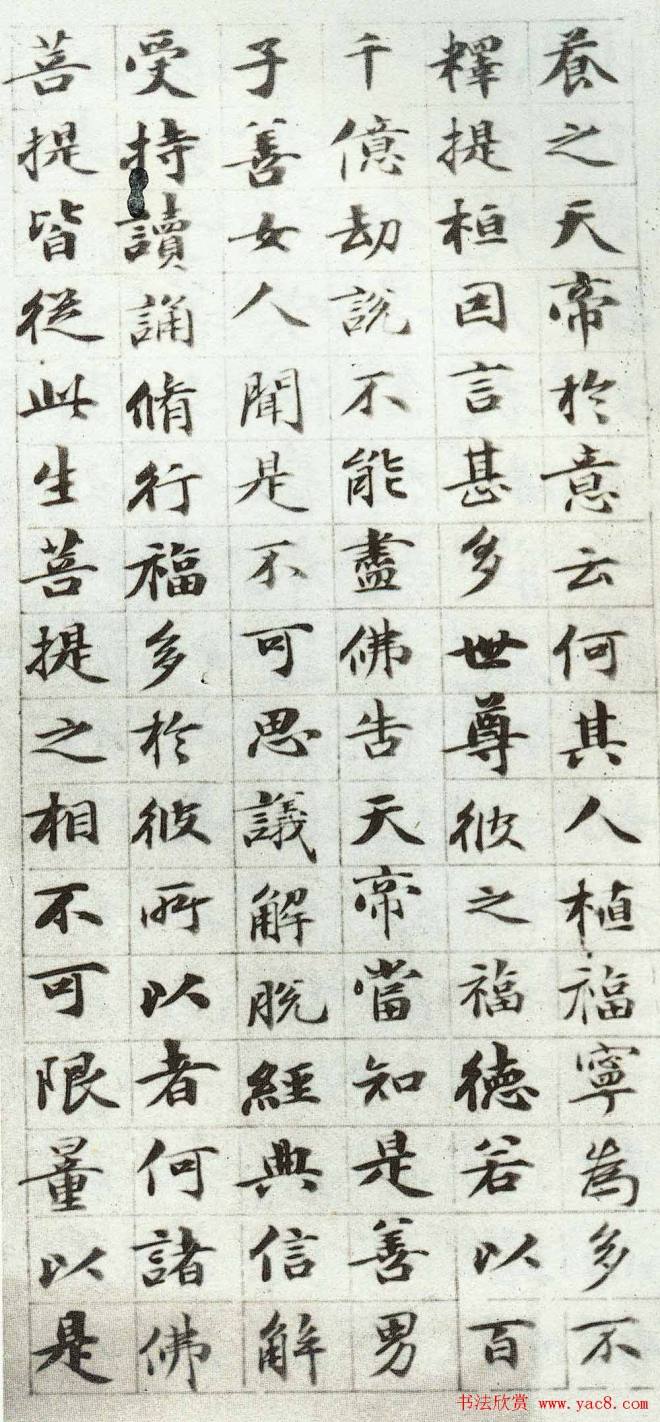 養之天帝於意云何其人植福寧為多不
釋提桓因言甚多世尊彼之福德若以百
千億劫說不能盡佛告天帝當知是善男
子善女人聞是不可思議解脫經典信解
受持讀誦脩行福多於彼所以者何諸佛
菩提皆從此生菩提之相不可限量以是
书法欣赏 www.yac8.com